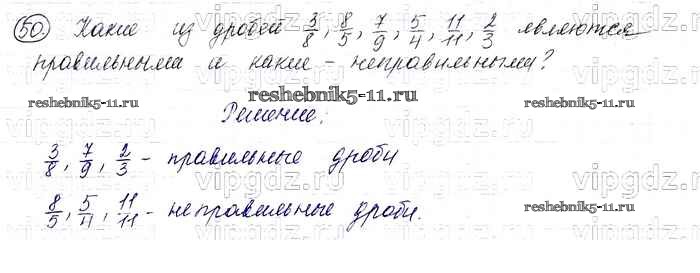 50. Какие из дробей 3/8, 8/5, 7/9, 5/4, 11/11, 2/3 являются
правильными и какие - неправильными?
reshebnik5-11.ru reshebnik5-11.ru
Решение:
vipgdz.ru vipgdz.ru vipgdz.ru
3/8, 7/9, 2/3 - правильные дроби
vipgdz.ru vipgdz.ru vipgdz.ru
8/5, 5/4, 11/11 - неправильные дроби.
reshebnik5-11.ru reshebnik5-11.ru